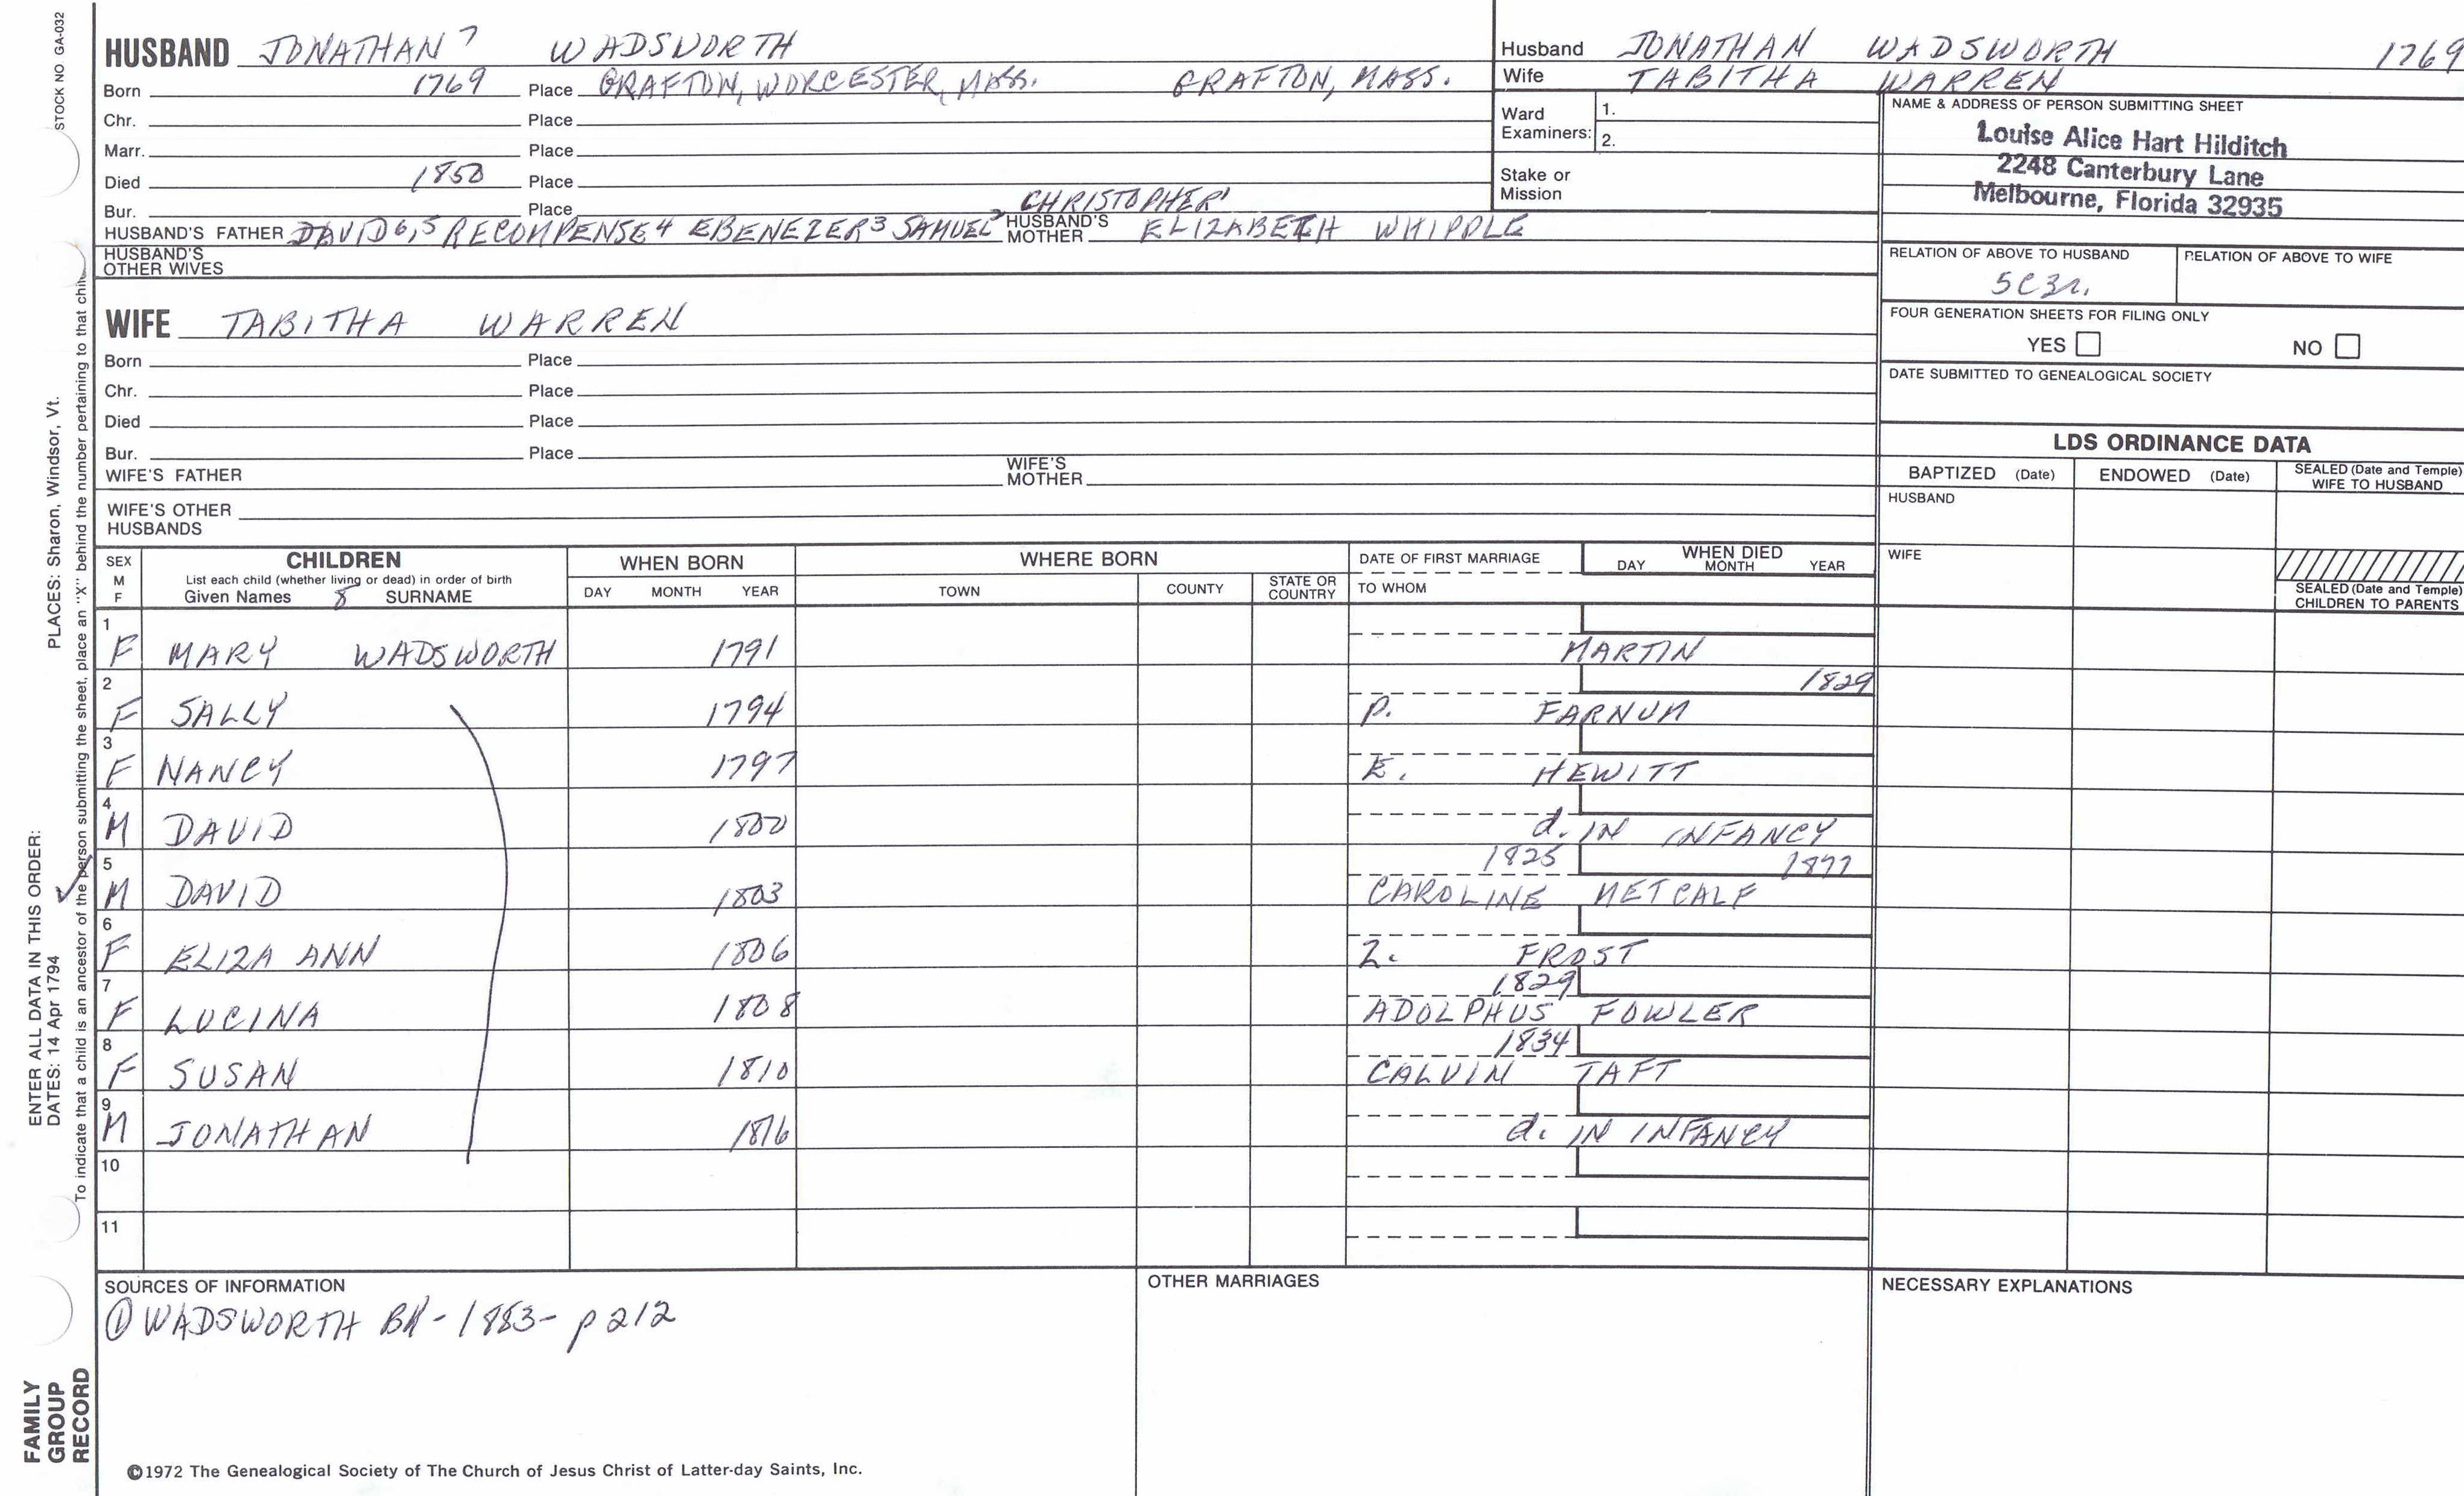 STOCK NO GA-032
HUSBAND JONATHAN 7 WADSWORTH
Born 1769 Place GRAFTON, WORCESTER, MASS. GRAFTON, MASS.
Chr. Place
Marr. Place
Died 1850 Place
Bur. Place
CHRISTOPHER'
HUSBAND'S FATHER DAVID 6,5 RECOMPENSE 4 EBENEZER 3 SAMUEL 2 HUSBAND'S MOTHER ELIZABETH WHIPPLE
HUSBAND'S OTHER WIVES
WIFE TABITHA WARREN
Born Place
Chr. Place
Died Place
Bur. Place
WIFE'S FATHER WIFE'S MOTHER
WIFE'S OTHER HUSBANDS
Husband JONATHAN WADSWORTH 1769
Wife TABITHA WARREN
Ward Examiners: 1.
2.
Stake or Mission
NAME & ADDRESS OF PERSON SUBMITTING SHEET
Louise Alice Hart Hilditch
2248 Canterbury Lane
Melbourne, Florida 32935
RELATION OF ABOVE TO HUSBAND RELATION OF ABOVE TO WIFE
5C3r.
FOUR GENERATION SHEETS FOR FILING ONLY
YES NO
DATE SUBMITTED TO GENEALOGICAL SOCIETY
LDS ORDINANCE DATA
BAPTIZED (Date) ENDOWED (Date) SEALED (Date and Temple) WIFE TO HUSBAND
HUSBAND
WIFE
SEALED (Date and Temple) CHILDREN TO PARENTS
SEX M F CHILDREN WHEN BORN WHERE BORN DATE OF FIRST MARRIAGE WHEN DIED
List each child (whether living or dead) in order of birth
Given Names 8 SURNAME DAY MONTH YEAR TOWN COUNTY STATE OR COUNTRY TO WHOM DAY MONTH YEAR
1 F MARY WADSWORTH 1791 MARTIN
1829
2 F SALLY 1794 P. FARNUM
3 F NANCY 1797 E. HEWITT
4 M DAVID 1800 d. IN INFANCY
1825 1877
5 M DAVID 1803 CAROLINE METCALF
6 F ELIZA ANN 1806 Z. FROST
1829
7 F LUCINA 1808 ADOLPHUS FOWLER
1834
8 F SUSAN 1810 CALVIN TAFT
9 M JONATHAN 1816 d. IN INFANCY
10
11
SOURCES OF INFORMATION OTHER MARRIAGES NECESSARY EXPLANATIONS
① WADSWORTH BK - 1883 - p 212
©1972 The Genealogical Society of The Church of Jesus Christ of Latter-day Saints, Inc.
FAMILY GROUP RECORD
ENTER ALL DATA IN THIS ORDER:
DATES: 14 Apr 1794 PLACES: Sharon, Windsor, Vt.
To indicate that a child is an ancestor of the person submitting the sheet, place an "X" behind the number pertaining to that chil